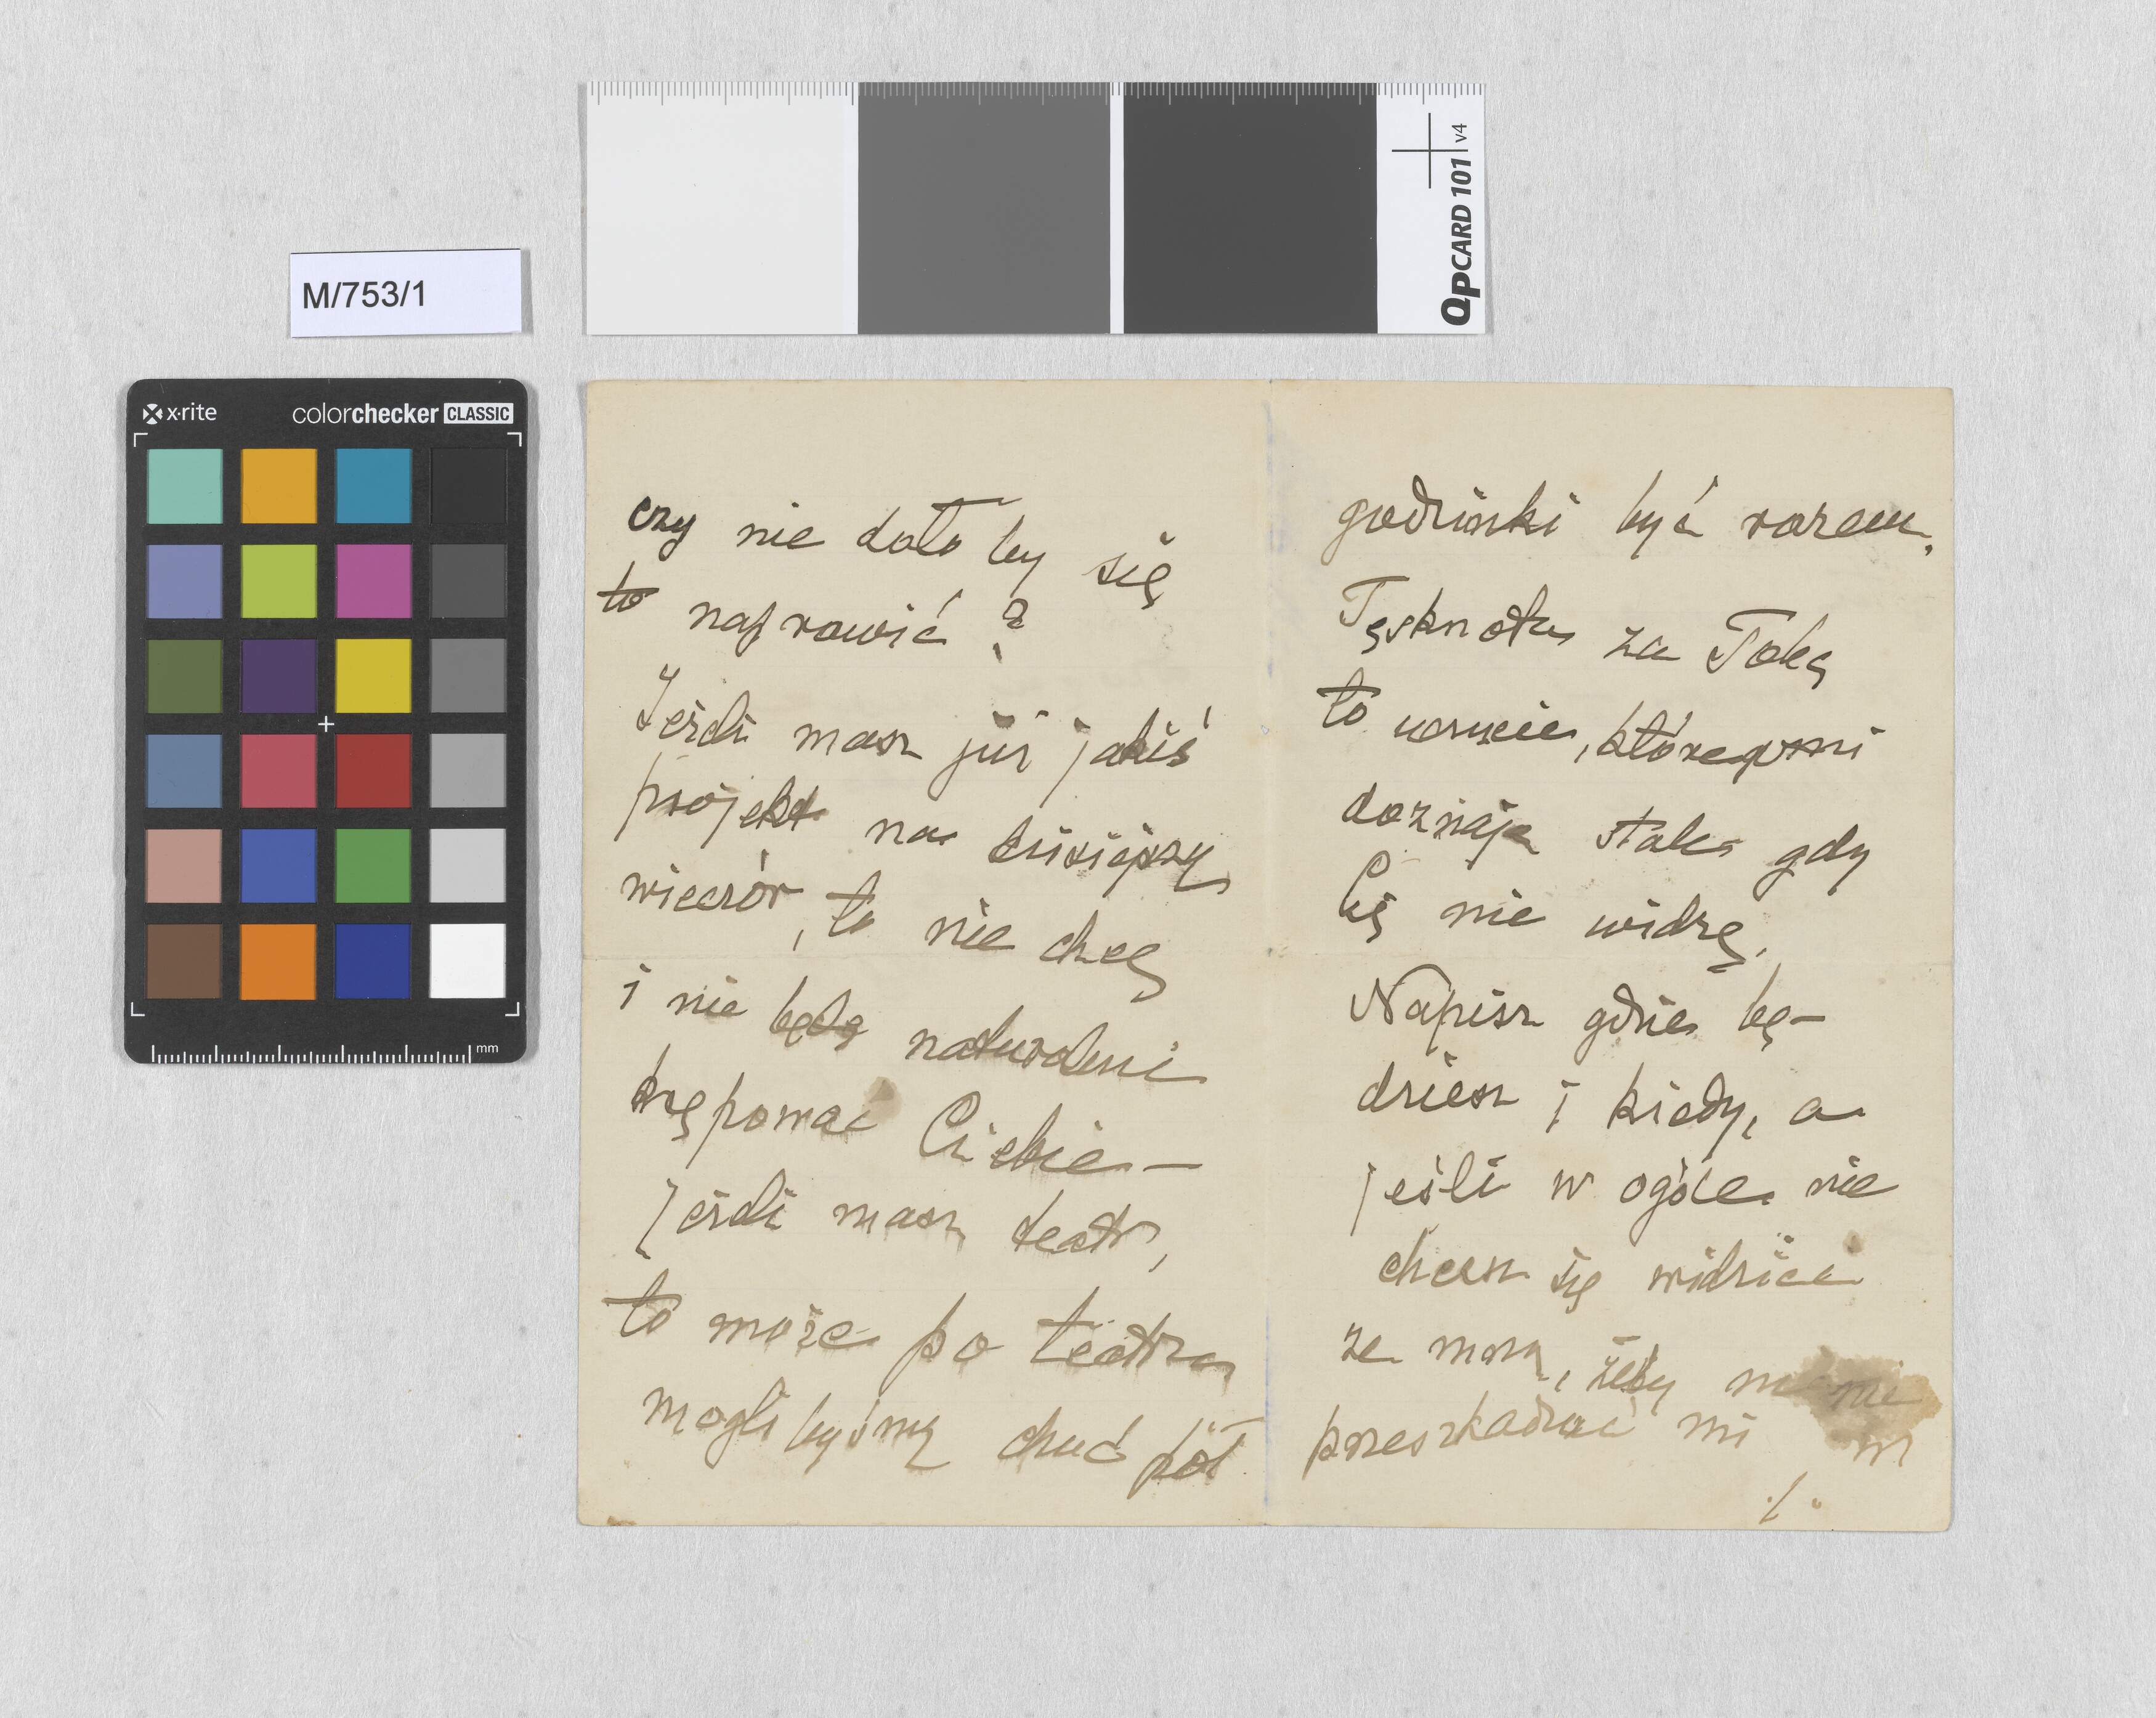 M/753/1
QPCARD 101 v4
x·rite colorchecker CLASSIC
mm
czy nie dało by się
to naprawić?
Jeżeli masz już jakiś
projekt na dzisiejszy
wieczór, to nie chcę
i nie będę naturalnie
krępować Ciebie —
Jeżeli masz teatr,
to może po teatrze
mogli byśmy choć pół
godzinki być razem.
Tęsknota za Tobą
to uczucie, którego
doznaję stale gdy
Cię nie widzę.
Napisz gdzie bę-
dziesz i kiedy, a
jeśli w ogóle nie
chcesz się widzieć
ze mną, żeby
przeszkadzać mi
./.